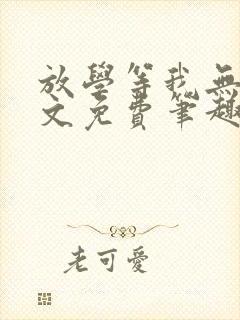 放學等我無
文免費筆趣
老可愛